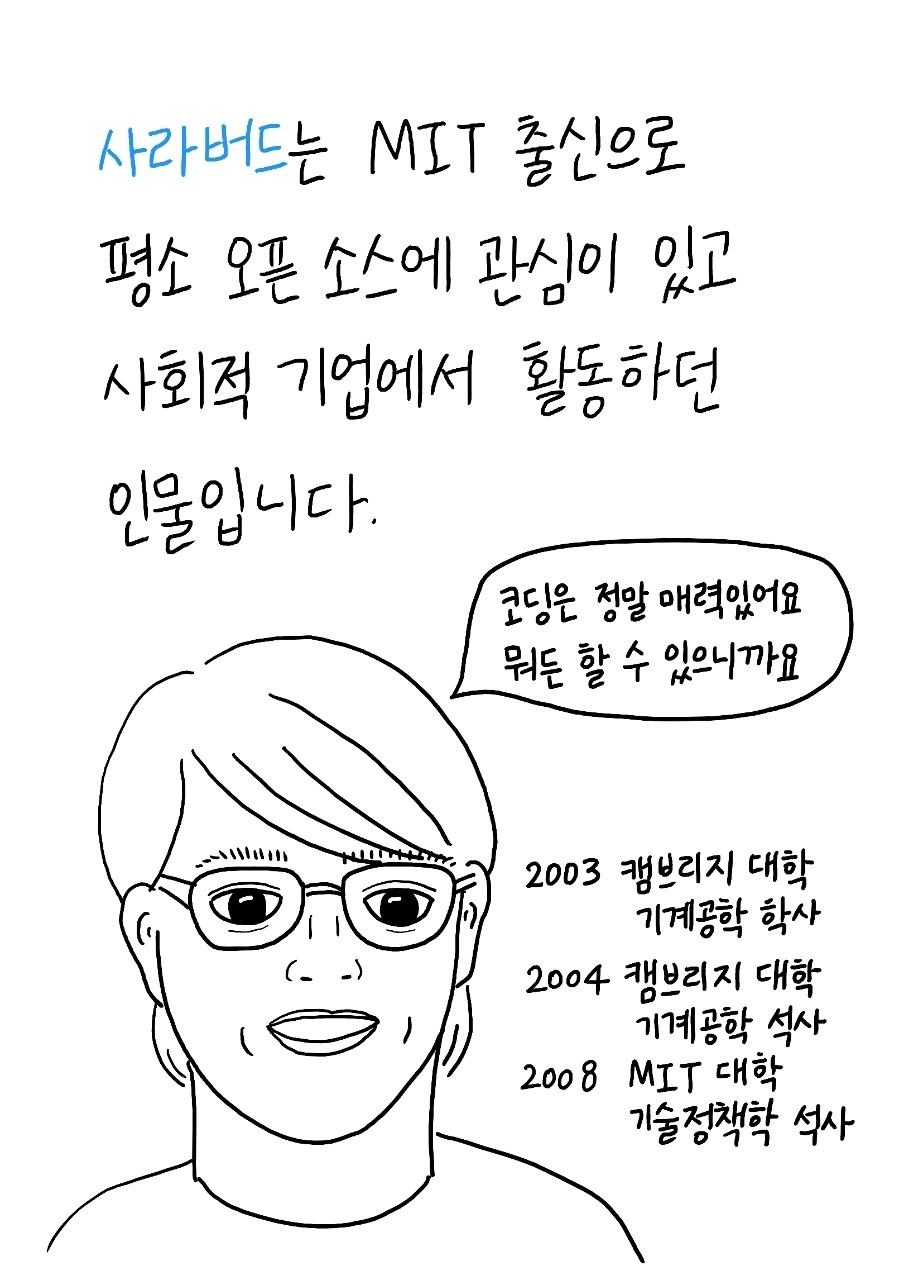 사라버드는 MIT 출신으로
평소 오픈 소스에 관심이 있고
사회적 기업에서 활동하던
인물입니다.
코딩은 정말 매력있어요
뭐든 할 수 있으니까요
2003 캠브리지 대학
기계공학 학사
2004 캠브리지 대학
기계공학 석사
2008 MIT 대학
기술정책학 석사